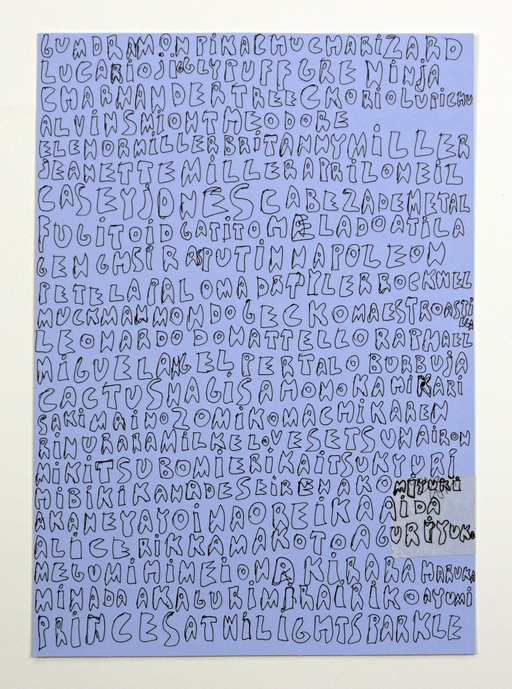 GUMDRAMONPIKACHUCHARIZARD
LUCARIOJIGGLYPUFFGRENINJA
CHARMANDERTREECKORIOLUPICHU
ALVINSMIONTHEODORE
ELENORMILLERBRITANNYMILLER
JEANETTEMILLERAPRILONEIL
CASEYJONESCABEZADEMETAL
FUGITOIDGATITOHELADOATILA
GENGHSIRASPUTINNAPOLEON
PETELAPALOMADRTYLERROCKWEL
MUCKMANMONDOGECKOMAESTROASTILLA
LEONARDODONATTELLORAPHAEL
MIGUELANGELPERTALOBURBUJA
CACTUSNAGISAMONOKAMIKARI
SAKIMAINOZOMIKOMACHIKAREN
RINURARAMILKELOVESETSUNAIRON
MIKITSUBOMIERIKAITSUKYURI
HIBIKIKANADESEIRENAKOMIYUKI
AKANEYAYOINAOREIKAAIDA
ALICERIKKAMAKOTOAGURIYUK
MEGUMIHIMEIONAKIRARAHARUKA
MINADAAKAGURIMIRAIRIKOAYUMI
PRINCESATWILIGHTSPARKLE